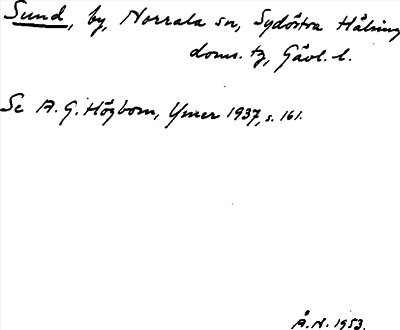 Sund, by, Norrala sn, Sydöstra Hälsing
doms. tg, Gävl. l.
Se A. G. Högbom, Ymer 1937, s. 161.
Å.N. 1953.